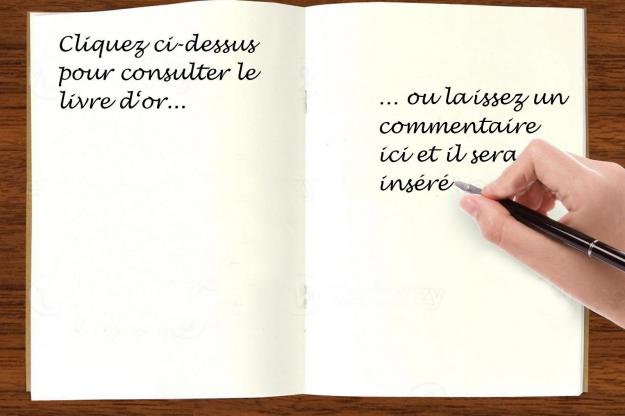 Cliquez ci-dessus
pour consulter le
livre d'or...
... ou laissez un
commentaire
ici et il sera
inséré